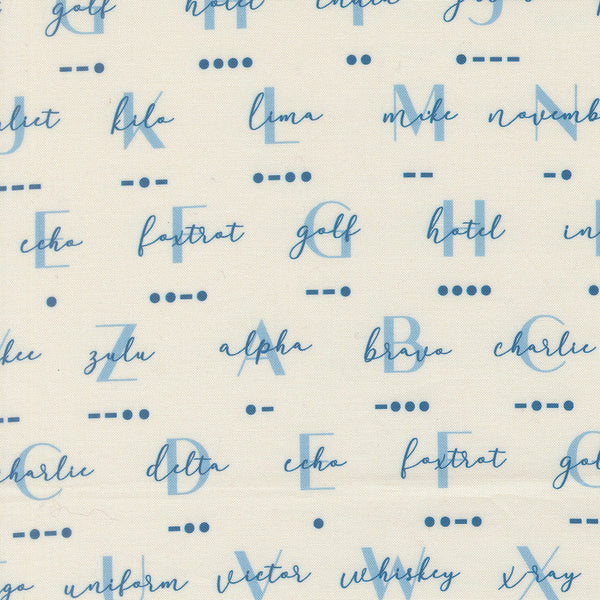 G golf H hotel I india J
--• •••• •• •---
J liet K kilo L lima M mike N novemb
--- -•- •-•• -- -•
E echo F foxtrot G golf H hotel in
• ••-• --• •••• •
kee Z zulu A alpha B bravo C charlie
-- --•• •- -••• -•-•
C charlie D delta E echo F foxtrot G gol
-•-• -•• • ••-• --
go U uniform V victor W whiskey X x-ray